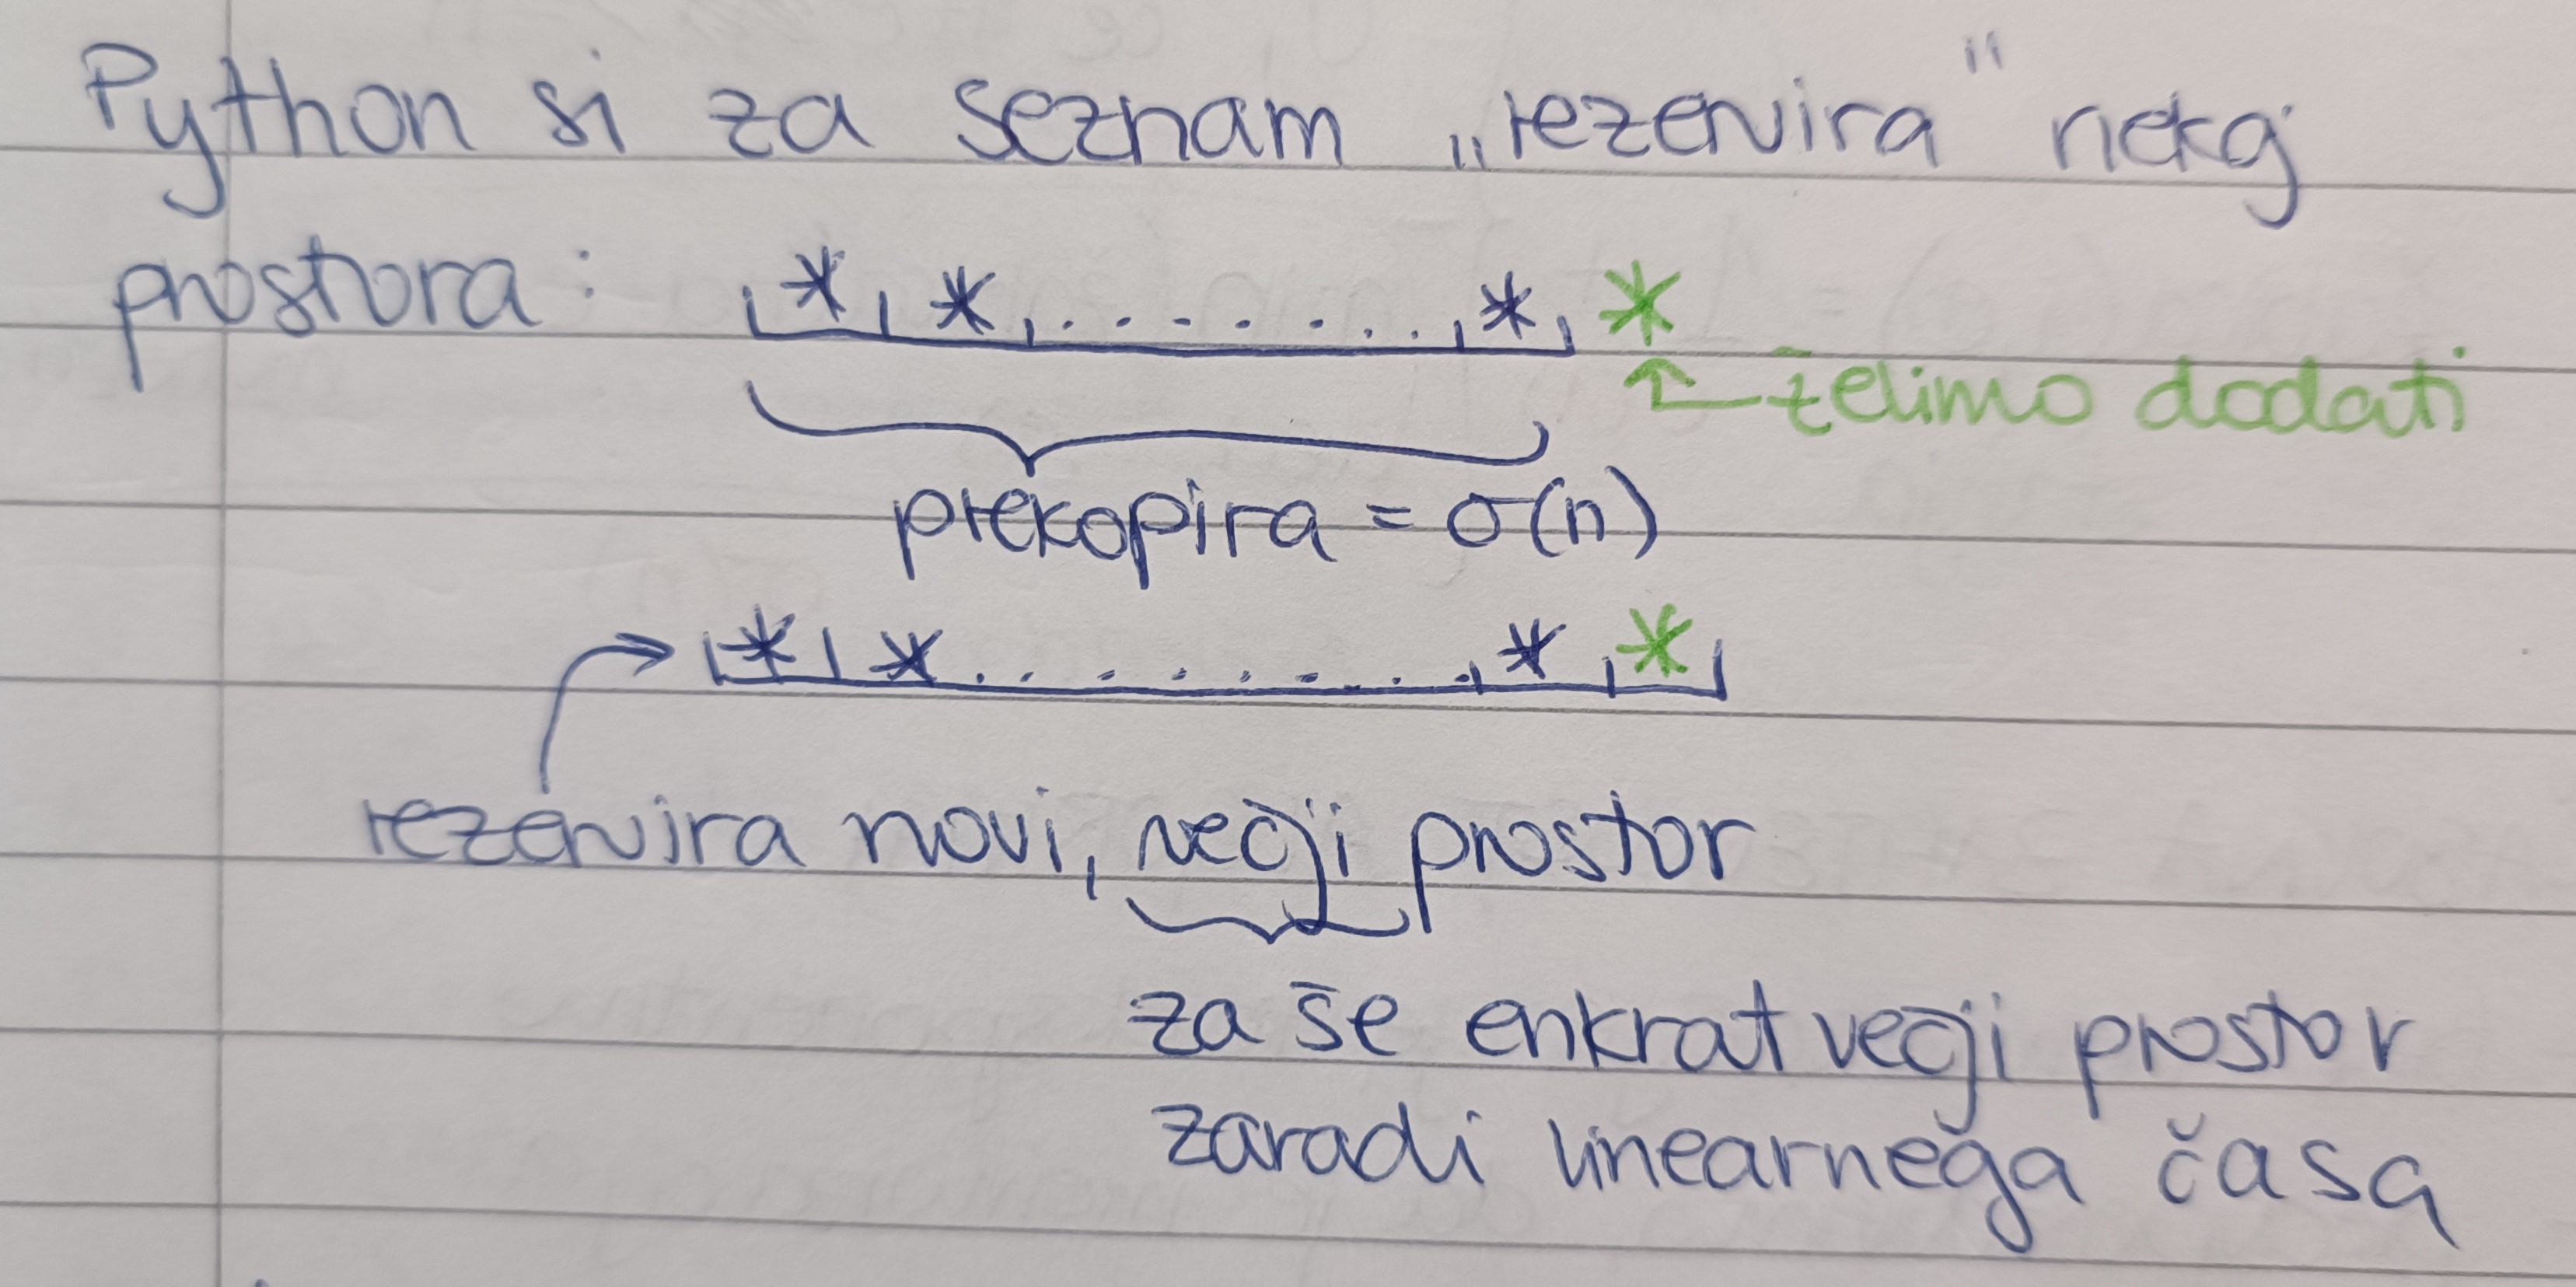 Python si za seznam „rezervira“ nekaj
prostora: * * ........ * *
želimo dodati
prekopira = σ(n)
* * ......... * *
rezervira novi, večji prostor
za še enkrat večji prostor
zaradi linearnega časa